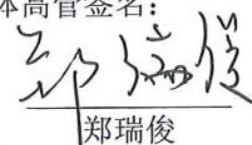 体高管签名：
郑瑞俊
郑瑞俊